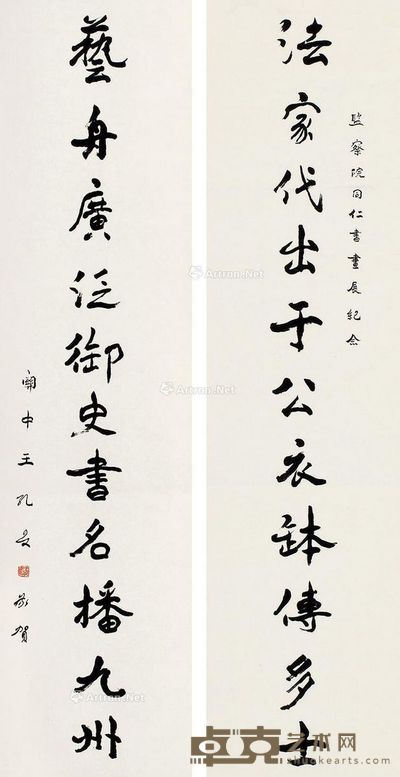 監察院同仁書畫展紀念
法家代出于公衣缽傳多士
藝舟廣泛御史書名播九州
關中王孔 敬賀
Artron.Net
Artron.Net
Artron.Net
Artron.Net
Artron.Net
卓克艺术网
zhuokearts.com